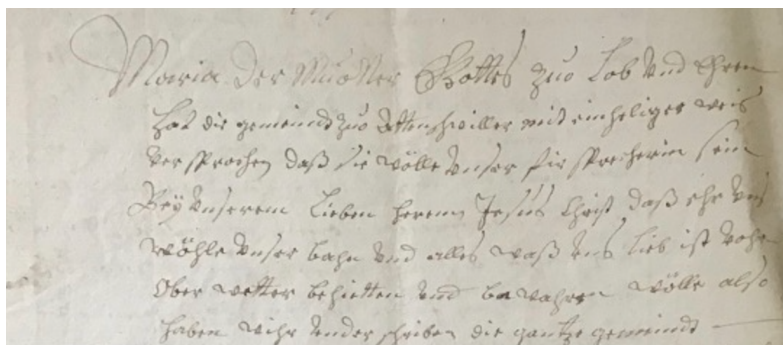 Maria der Muotter Gottes zuo Lob vnd Ehren
hat die gemeindt zuo attenschwiller mit einheliger weis
versprochen daß sie wölle vnser fir sprecherin sein
Bey vnserem Lieben herrenn Jesus Christ daß ehr vns
wöhle vnser bahn vnd alles waß vns lieb ist vohr
vber wetter behietten vnd bewahren wölle also
haben wihr vnder schriben die gantze gemeindt